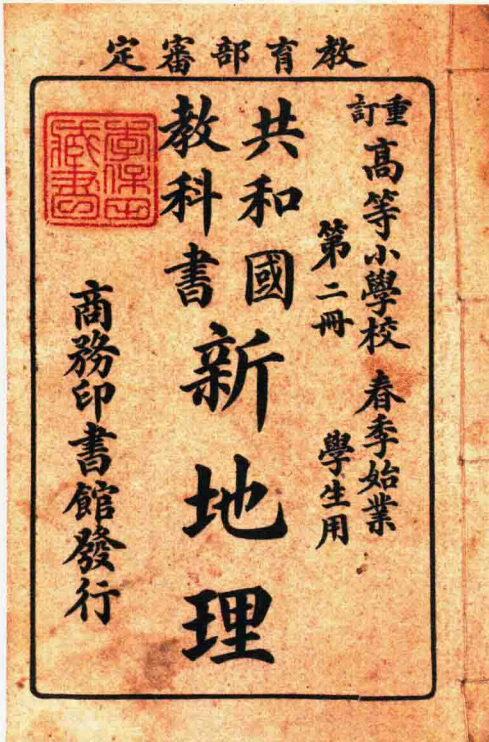 教育部審定
重訂
高等小學校 春季始業
第二冊 學生用
共和國
教科書
新地理
商務印書館發行